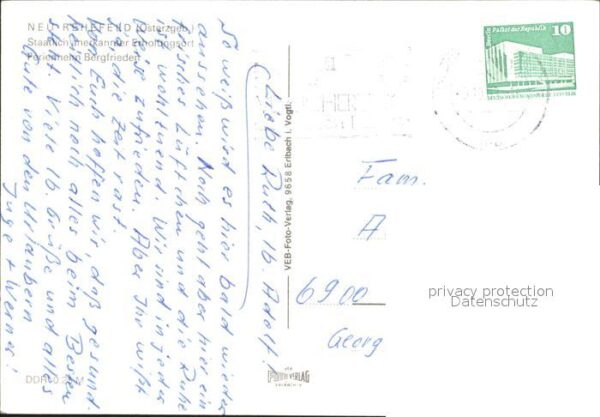 NEU-REHEFELD (Osterzgeb.)
Staatlich anerkannter Erholungsort
Ferienheim Bergfrieden
Liebe Ruth, lb. Adolf!
So weiß wird es hier bald wieder
aussehen. Noch geht aber hier ein
frisches Lüftchen und die Ruhe
ist wohltuend. Wir sind in jeder
zufrieden. Aber Ihr wißt
ja die Zeit rast.
Von Euch hoffen wir, daß gesund-
heitlich noch alles beim Besten
steht. Viele lb. Grüße und alles
Gute von den Urlaubern
Inge + Werner!
DDR
VEB-Foto-Verlag, 9658 Erlbach i. Vogtl.
FOTO VERLAG
ERLBACH
Berlin, Palast der Republik
10
DEUTSCHE DEMOKRATISCHE REPUBLIK
Fam.
A
6900
Georg
privacy protection
Datenschutz